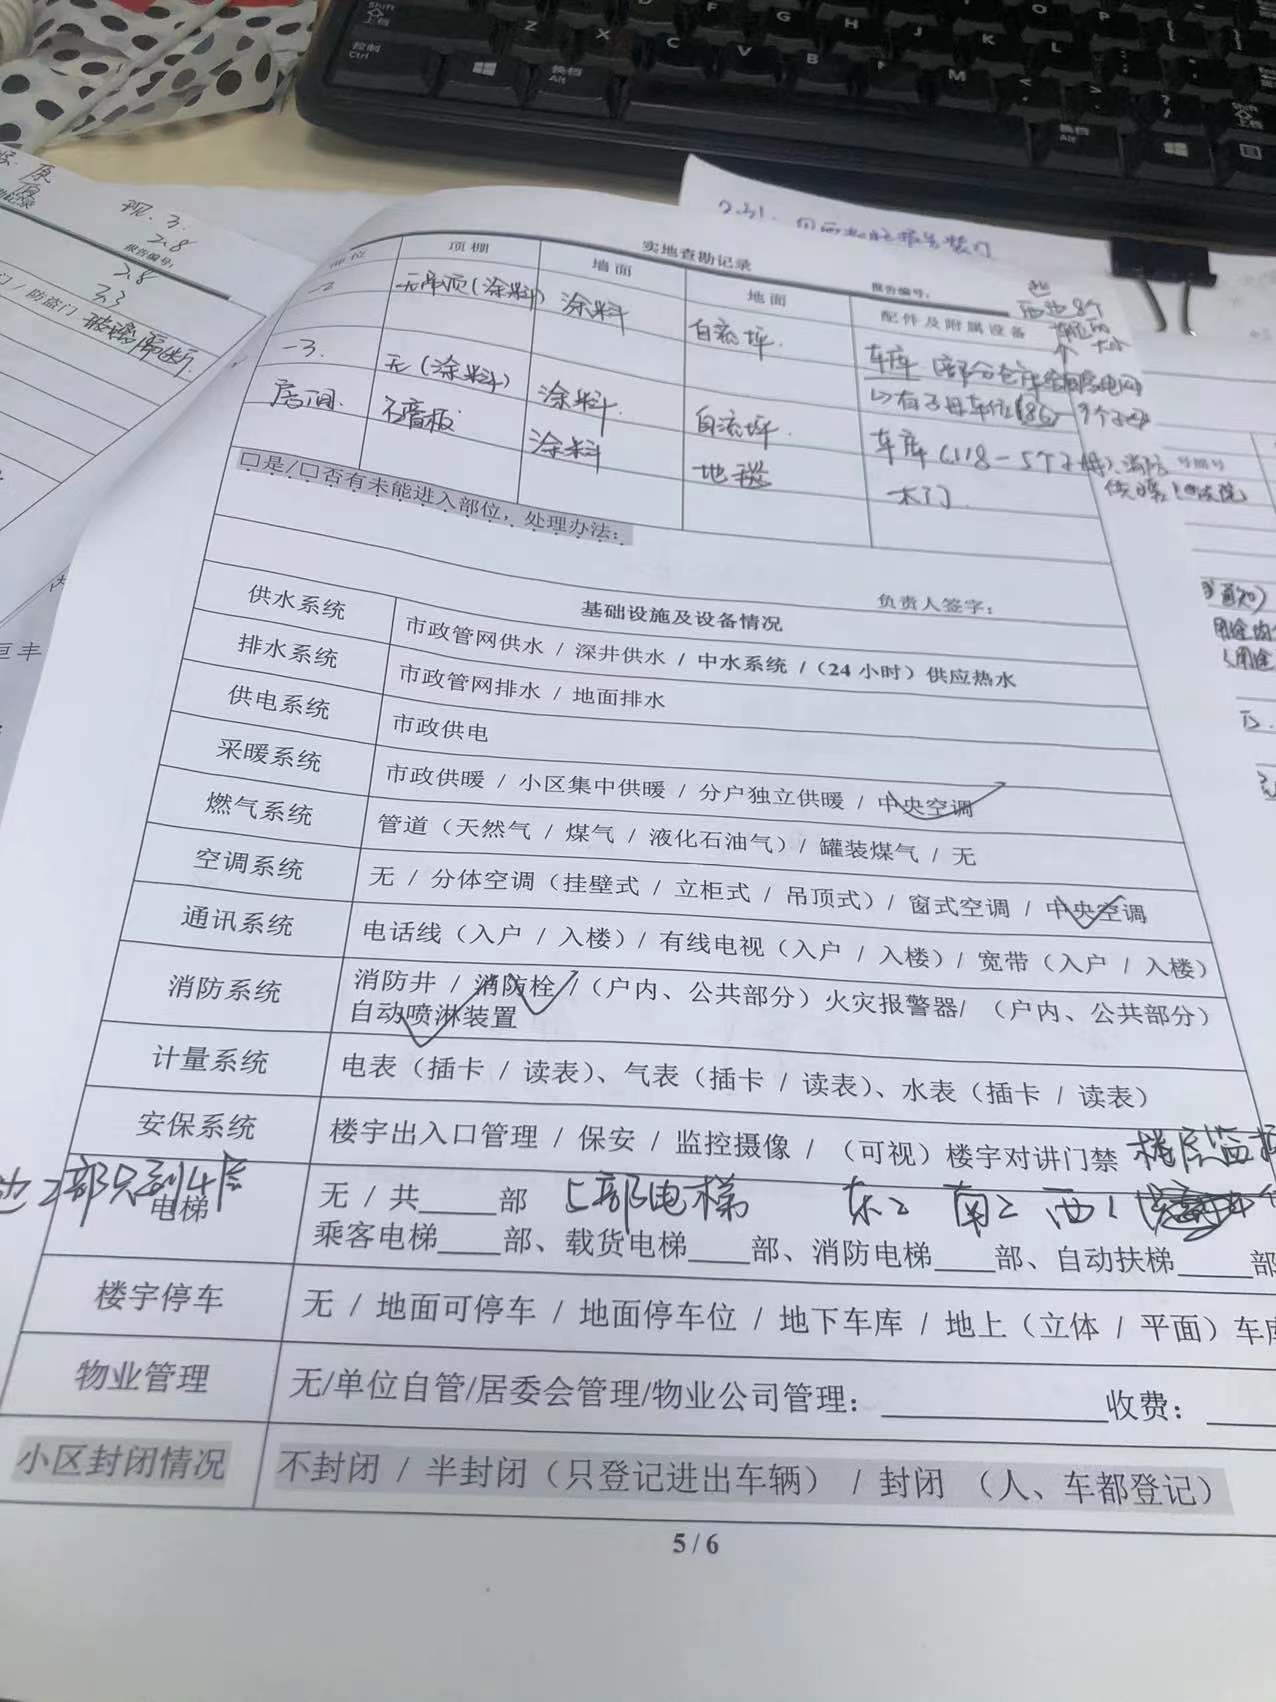 2.31.
实地查勘记录
报告编号:
部位 顶棚 墙面 地面 配件及附属设备
西边8个
-2 无吊顶(涂料) 涂料 自流坪. 车库
-3. 无(涂料) 涂料. 自流坪. 车库(118-
房间. 石膏板 涂料 地毯 木门.
□是/□否有未能进入部位,处理办法:
负责人签字:
基础设施及设备情况
供水系统 市政管网供水 / 深井供水 / 中水系统 /(24 小时)供应热水
排水系统 市政管网排水 / 地面排水
供电系统 市政供电
采暖系统 市政供暖 / 小区集中供暖 / 分户独立供暖 / 中央空调
燃气系统 管道(天然气 / 煤气 / 液化石油气)/ 罐装煤气 / 无
空调系统 无 / 分体空调(挂壁式 / 立柜式 / 吊顶式)/ 窗式空调 / 中央空调
通讯系统 电话线(入户 / 入楼)/ 有线电视(入户 / 入楼)/ 宽带(入户 / 入楼)
消防系统 消防井 / 消防栓 /(户内、公共部分)火灾报警器/ (户内、公共部分)
自动喷淋装置
计量系统 电表(插卡 / 读表)、气表(插卡 / 读表)、水表(插卡 / 读表)
安保系统 楼宇出入口管理 / 保安 / 监控摄像 / (可视)楼宇对讲门禁
边2部只到4层
电梯 无 / 共_____部 5部电梯 东2 南2 西1
乘客电梯____部、载货电梯____部、消防电梯____部、自动扶梯_____部
楼宇停车 无 / 地面可停车 / 地面停车位 / 地下车库 / 地上(立体 / 平面)车库
物业管理 无/单位自管/居委会管理/物业公司管理:______________收费:____
小区封闭情况 不封闭 / 半封闭(只登记进出车辆) / 封闭 (人、车都登记)
5 / 6
现.3.
2.8
报告编号:
2.8
3.3
门 / 防盗门 玻璃隔断.